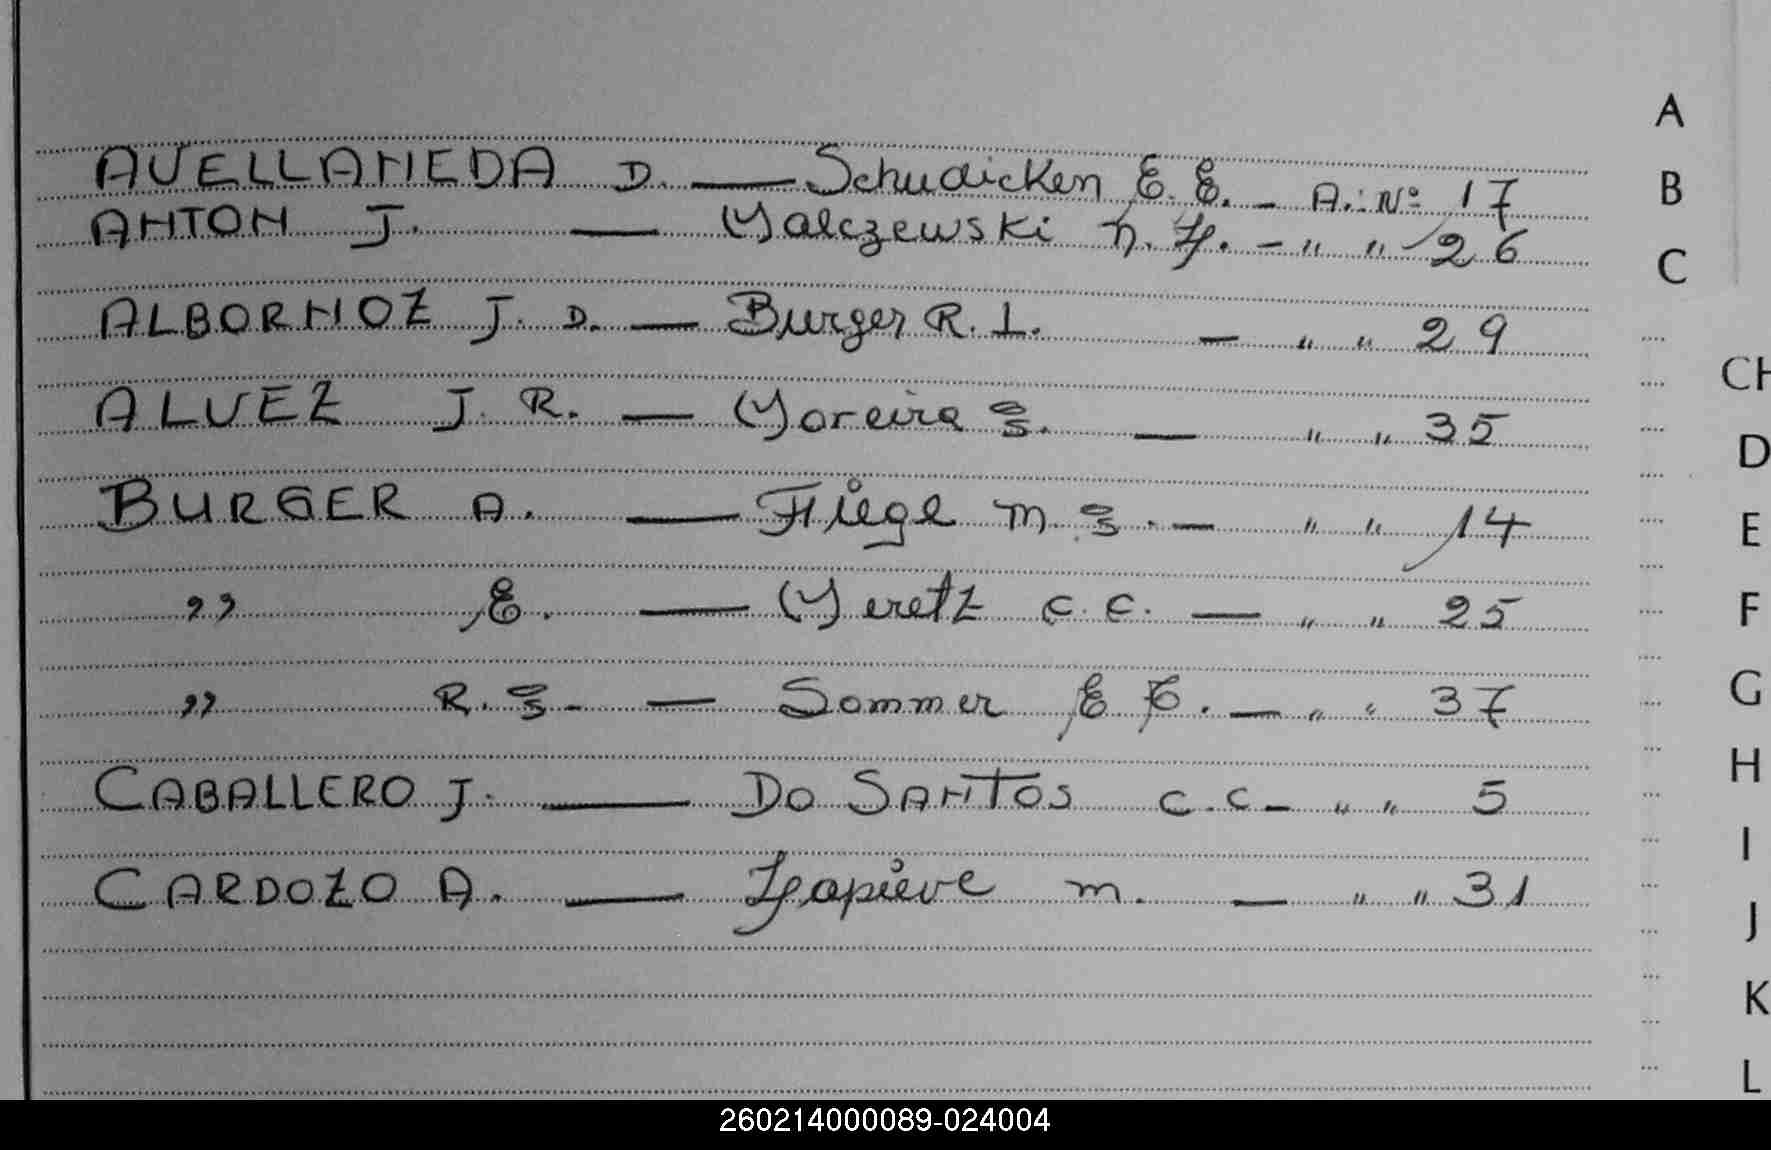 AVELLANEDA D. — Schudicken E. E. - A. Nº 17
ANTON J. — Malczewski N. H. - " " 26
ALBORNOZ J. D. — Burger R. L. - " " 29
ALVEZ J. R. — Moreira S. — " " 35
BURGER A. — Fliege M. S. - " " 14
" E. — Meretz C. C. — " " 25
" R. S. — Sommer E E. — " " 37
CABALLERO J. — DO SANTOS C. C - " " 5
CARDOZO A. — Lapieve M. — " " 31
A
B
C
CH
D
E
F
G
H
I
J
K
L
260214000089-024004